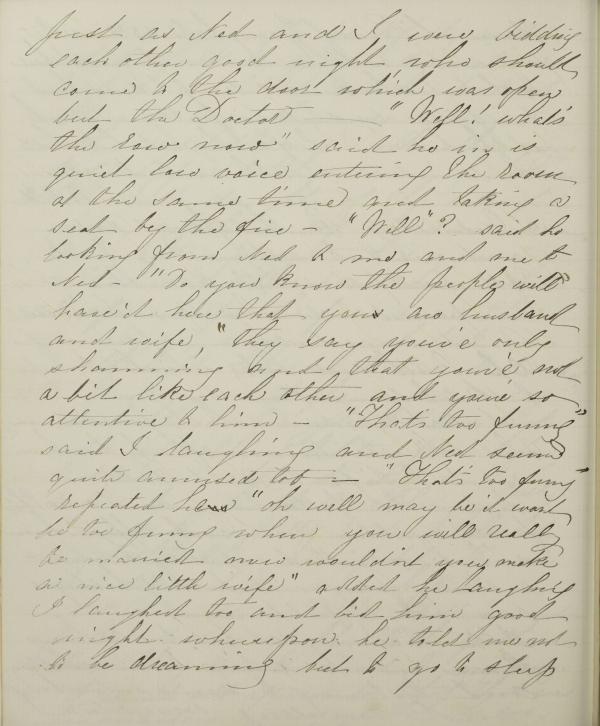 Just as Ned and I were bidding
each other good night who should
come to the door which was open
but the Doctor — "Well! what's
the row now" said he in is
quiet low voice entering the room
at the same time and taking a
seat by the fire — "Well"? said he
looking from Ned to me and me to
Ned — "Do you know the people will
have'd here that you are husband
and wife, "they say you're only
shamming and that you're not
a bit like each other and you're so
attentive to him — "That's too funny"
said I laughing and Ned seemed
quite amused too — "That's too funny"
repeated he "oh well may be it wont
be too funny when you will really
be married now wouldn't you make
a nice little wife" added he laughing
I laughed too and bid him good
night whereupon he told me not
to be dreaming but to go to sleep